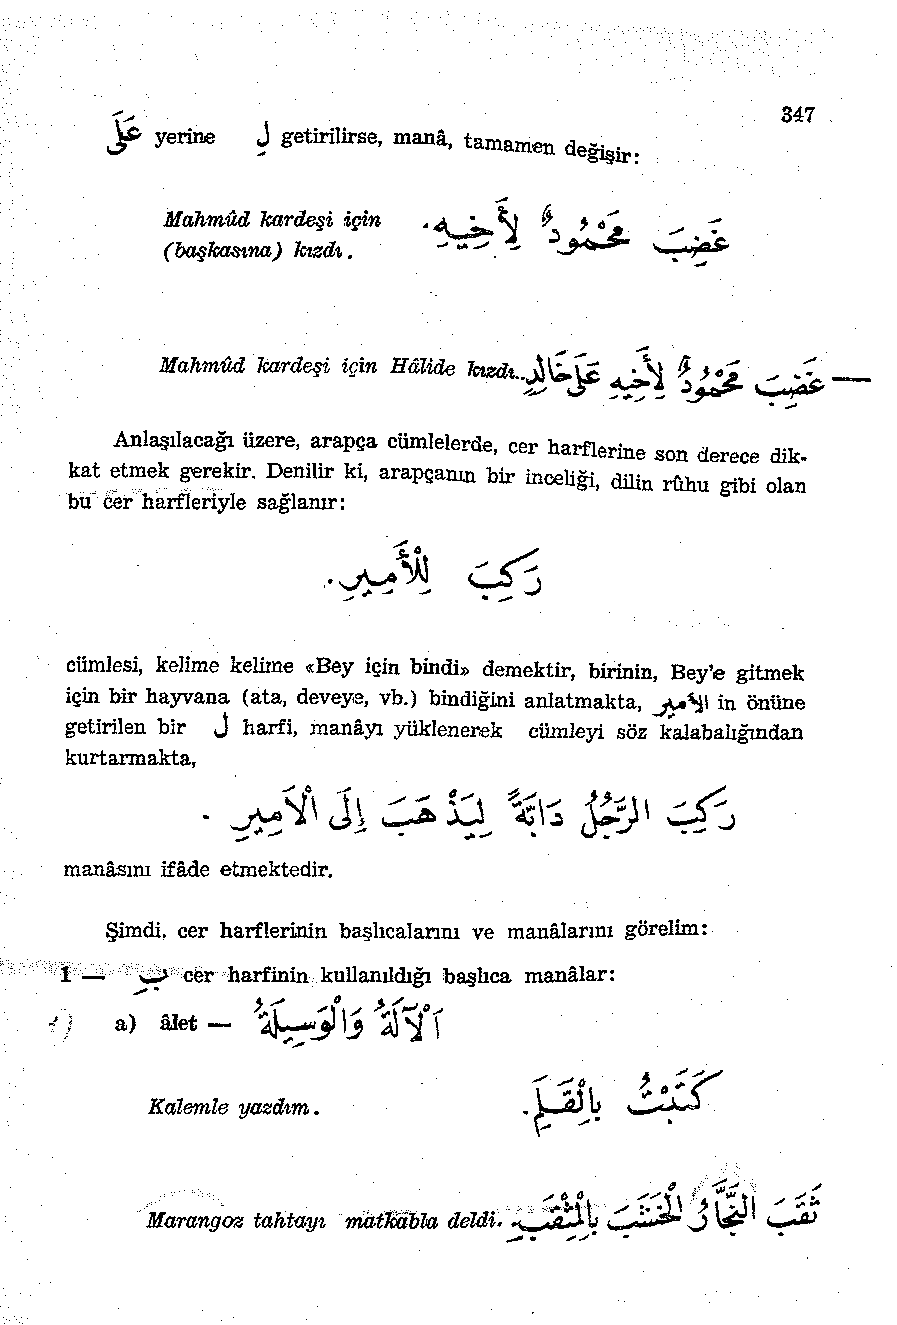 347
عَلَى yerine لِ getirilirse, manâ, tamamen değişir:
Mahmûd kardeşi için غَضِبَ مَحْمُودٌ لِأَخِيهِ.
(başkasına) kızdı.
Mahmûd kardeşi için Hâlide kızdı.. غَضِبَ مَحْمُودٌ لِأَخِيهِ عَلَى خَالِدٍ —
Anlaşılacağı üzere, arapça cümlelerde, cer harflerine son derece dik-
kat etmek gerekir. Denilir ki, arapçanın bir inceliği, dilin rûhu gibi olan
bu cer harfleriyle sağlanır:
رَكِبَ لِلْأَمِيرِ.
cümlesi, kelime kelime «Bey için bindi» demektir, birinin, Bey'e gitmek
için bir hayvana (ata, deveye, vb.) bindiğini anlatmakta, الأمير in önüne
getirilen bir لِ harfi, manâyı yüklenerek cümleyi söz kalabalığından
kurtarmakta,
رَكِبَ الرَّجُلُ دَابَّةً لِيَذْهَبَ إِلَى الْأَمِيرِ .
manâsını ifâde etmektedir.
Şimdi, cer harflerinin başlıcalarını ve manâlarını görelim:
1 — بِ cer harfinin kullanıldığı başlıca manâlar:
a) âlet — اَلْآلَةُ وَالْوَسِيلَةُ
Kalemle yazdım. كَتَبْتُ بِالْقَلَمِ.
Marangoz tahtayı matkabla deldi. ثَقَبَ النَّجَّارُ الْخَشَبَ بِالْمِثْقَبِ.